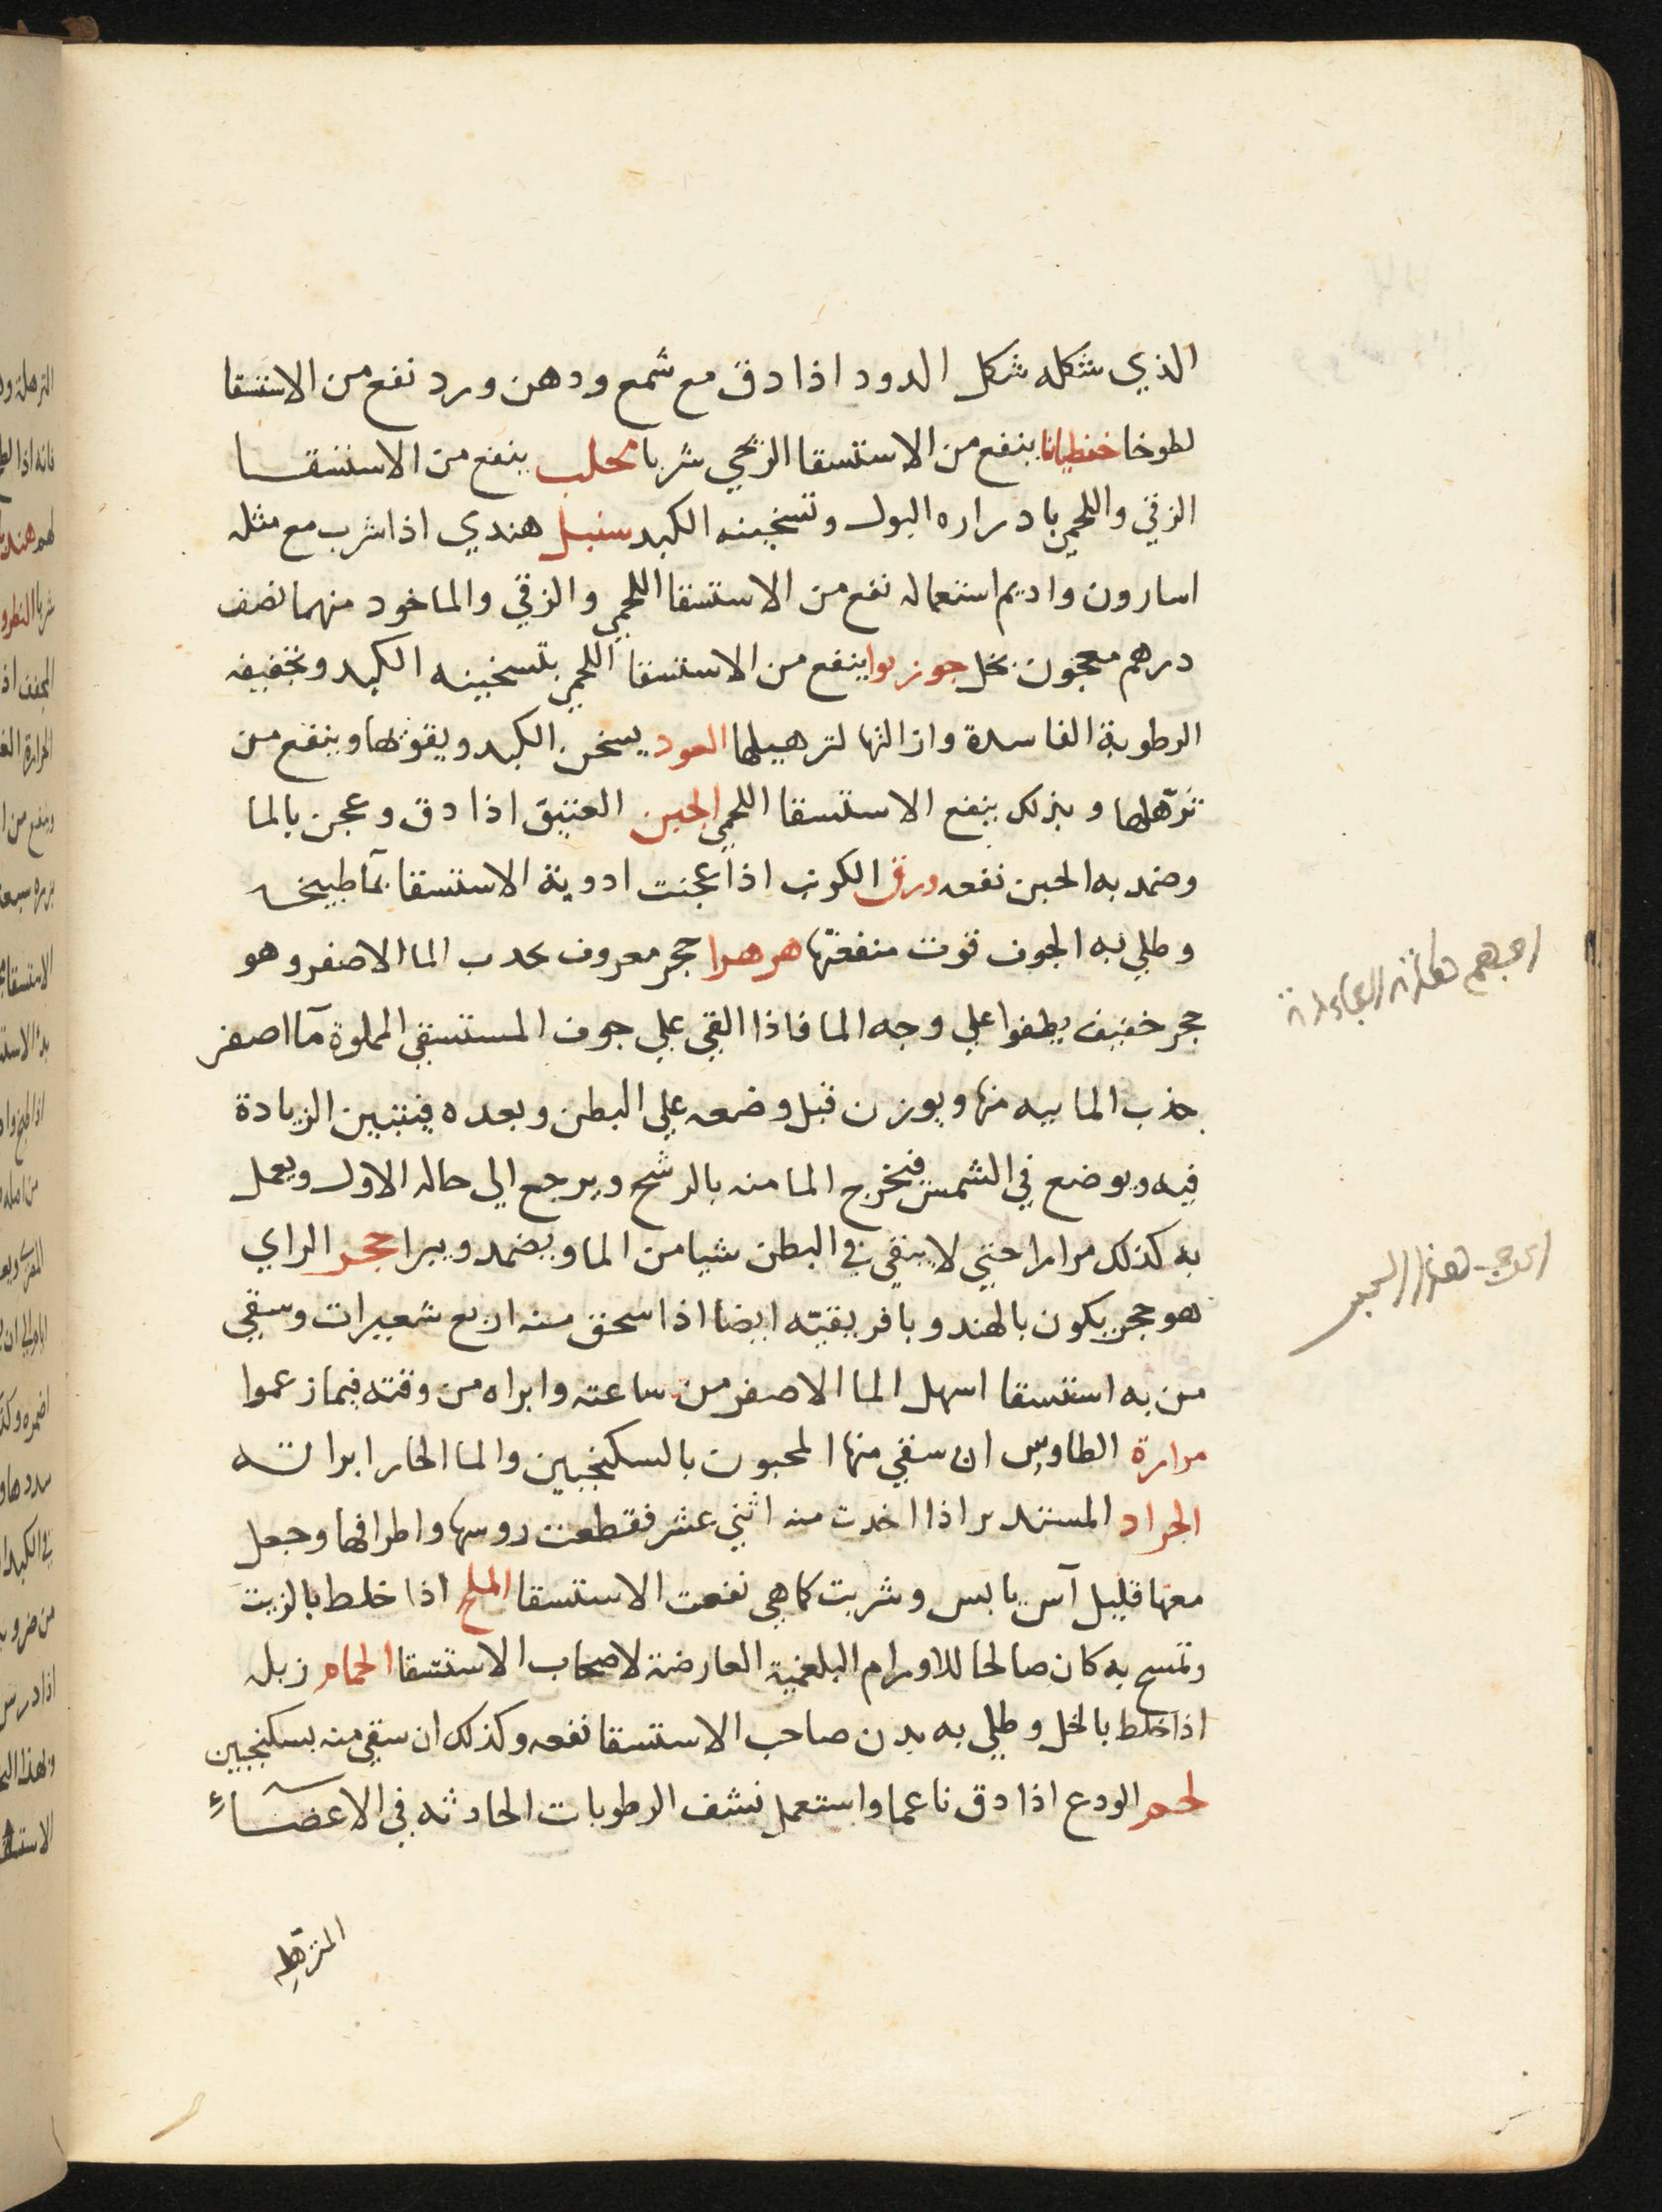 الذي شكله شكل الدود اذا دق مع شمع ودهن ورد نفع من الاستسقا
لطوخا خنطيانا ينفع من الاستسقا الزقي شربا محلب ينفع من الاستسقا
الزقي واللحمي بادراره البول وتسخينه الكبد سنبل هندي اذا شرب مع مثله
اسارون واديم استعماله نفع من الاستسقا اللحمي والزقي والماخود منهما نصف
درهم معجون بخل جوز بوا ينفع من الاستسقا اللحمي بتسخينه الكبد وتجفيفه
الرطوبة الفاسدة وازالتها لترهيلها العود يسخن الكبد ويقويها وينفع من
ترهلها وبذلك ينفع الاستسقا اللحمي الجبن العتيق اذا دق وعجن بالما
وضمد به الحبن نفعه ورق الكرنب اذا عجنت ادوية الاستسقا بمآ طبيخه
وطلي به الجوف قوت منفعتها هرهرا حجر معروف بحدب الما الاصفر وهو
حجر خفيف يطفوا علي وجه الما فاذا القي علي جوف المستسقي المملوة مآ اصفر
جذب الماييه منها ويوزن قبل وضعه علي البطن وبعده فيتبين الزيادة
فيه ويوضع في الشمس فيخرج الما منه بالرشح ويرجع الي حاله الاول ويعمل
به كذلك مرارا حتي لا يبقي في البطن شيا من الما ويضمد ويبرا حجر الراي
هو حجر يكون بالهند وبافريقيته ايضا اذا سحق منه اربع شعيرات وسقي
من به استسقا اسهل الما الاصفر من ساعته وابراه من وقته فيما زعموا
مرارة الطاوس ان سقي منها المحبون بالسكنجبين والما الحار ابراته
الجراد المستدير اذا اخدت منه اثني عشر فقطعت روسها واطرافها وجعل
معها قليل آس يابس وشربت كما هي نفعت الاستسقا الملح اذا خلط بالزيت
وتمسح به كان صالحا للاورام البلغمية العارضة لاصحاب الاستسقا الحمام زبله
اذا خلط بالخل وطلي به بدن صاحب الاستسقا نفعه وكذلك ان سقي منه بسكنجبين
لحم الودع اذا دق ناعما واستعمل نشف الرطوبات الحادثه في الاعضآء